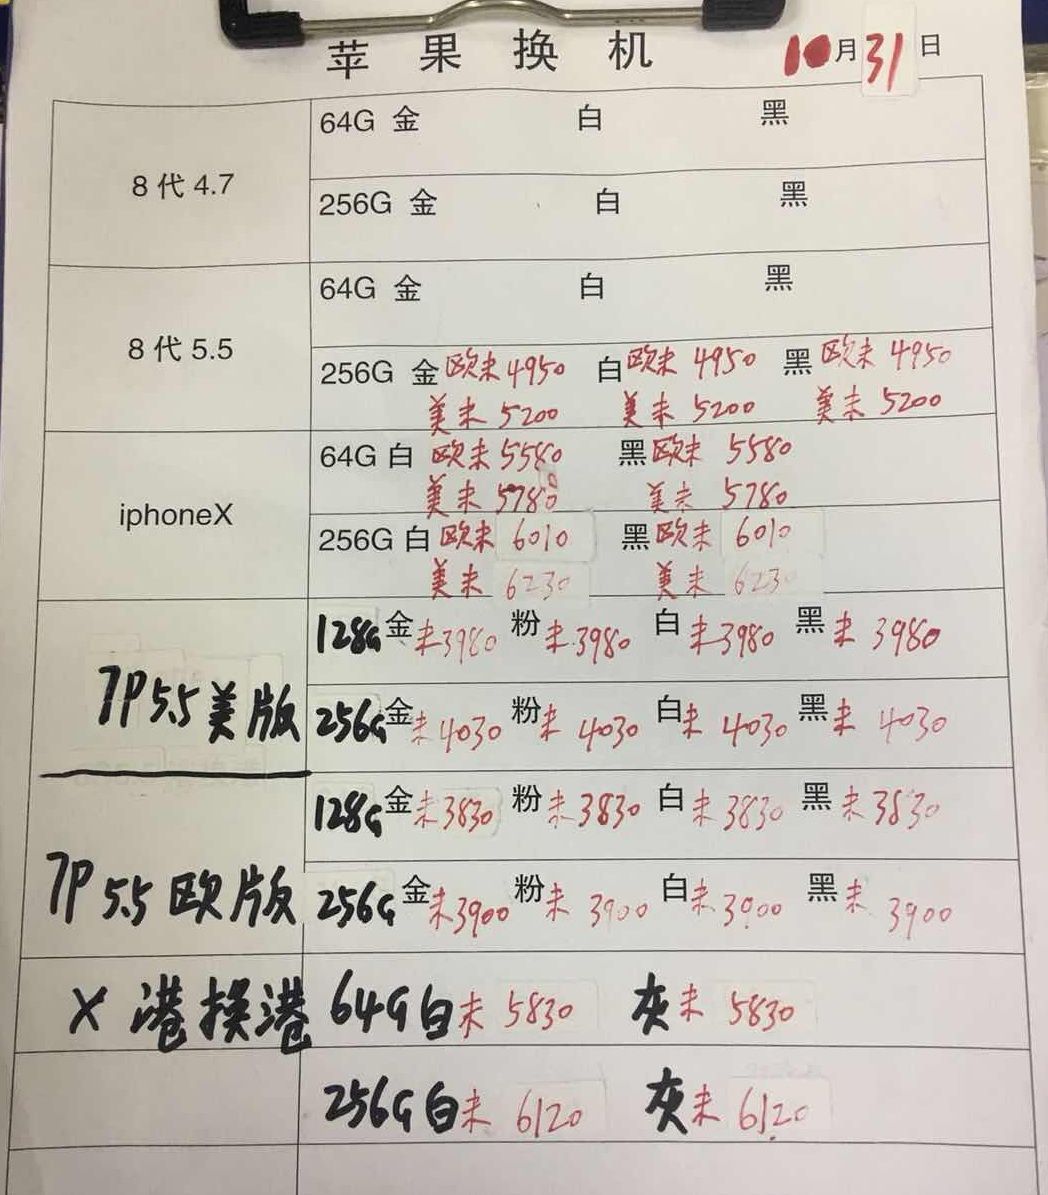 苹果换机 10月31日
8代4.7
64G 金 白 黑
256G 金 白 黑
8代5.5
64G 金 白 黑
256G 金 欧未 4950 白 欧未 4950 黑 欧未 4950
美未 5200 美未 5200 美未 5200
iphoneX
64G 白 欧未 5580 黑 欧未 5580
美未 5780 美未 5780
256G 白 欧未 6010 黑 欧未 6010
美未 6230 美未 6230
7P 5.5 美版
128G 金 未 3980 粉 未 3980 白 未 3980 黑 未 3980
256G 金 未 4030 粉 未 4030 白 未 4030 黑 未 4030
7P 5.5 欧版
128G 金 未 3830 粉 未 3830 白 未 3830 黑 未 3830
256G 金 未 3900 粉 未 3900 白 未 3900 黑 未 3900
X 港换港 64G 白 未 5830 灰 未 5830
256G 白 未 6120 灰 未 6120